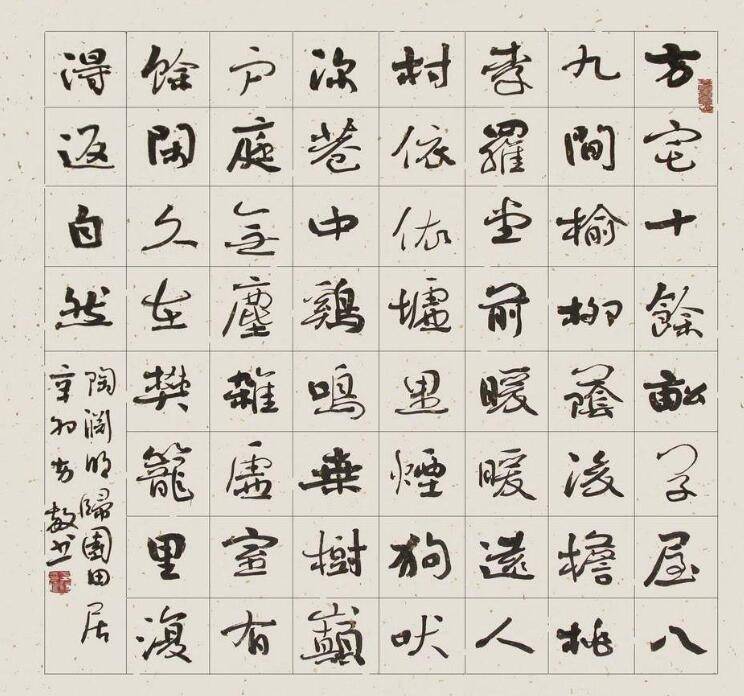 方宅十餘畝草屋八
九間榆柳蔭後檐桃
李羅堂前暖暖遠人
村依依墟里煙狗吠
深巷中鷄鳴桑樹巔
户庭無塵雜虛室有
餘閑久在樊籠里復
得返自然
陶淵明歸園田居
辛